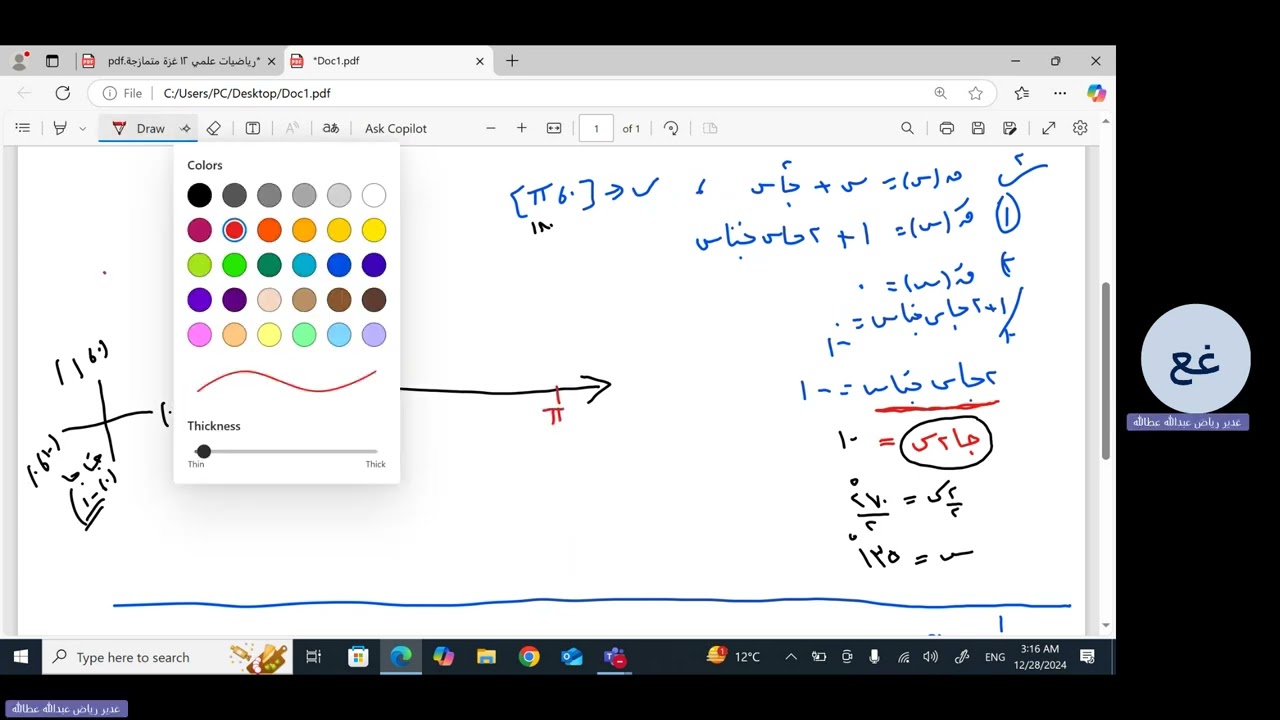 رياضيات علمي ١٢ غزة متمازجة.pdf*
*Doc1.pdf
File C:/Users/PC/Desktop/Doc1.pdf
Draw
Ask Copilot
1 of 1
Colors
Thickness
Thin Thick
ق(س) = س + جا٢س ، س ∈ [٠، π]
١٨٠
① قَ(س) = ١ + ٢جاس جتاس
قَ(س) = ٠
١ + ٢جاس جتاس = ٠
-١
٢جاس جتاس = -١
جا٢س = -١
٢س/٢ = ٢٧٠°/٢
س = ١٣٥°
π
(٠، ١)
(-١، ٠)
جتا جا
(٠، -١)
غع
غدير رياض عبدالله عطاالله
Type here to search
12°C
ENG
3:16 AM
12/28/2024
غدير رياض عبدالله عطاالله